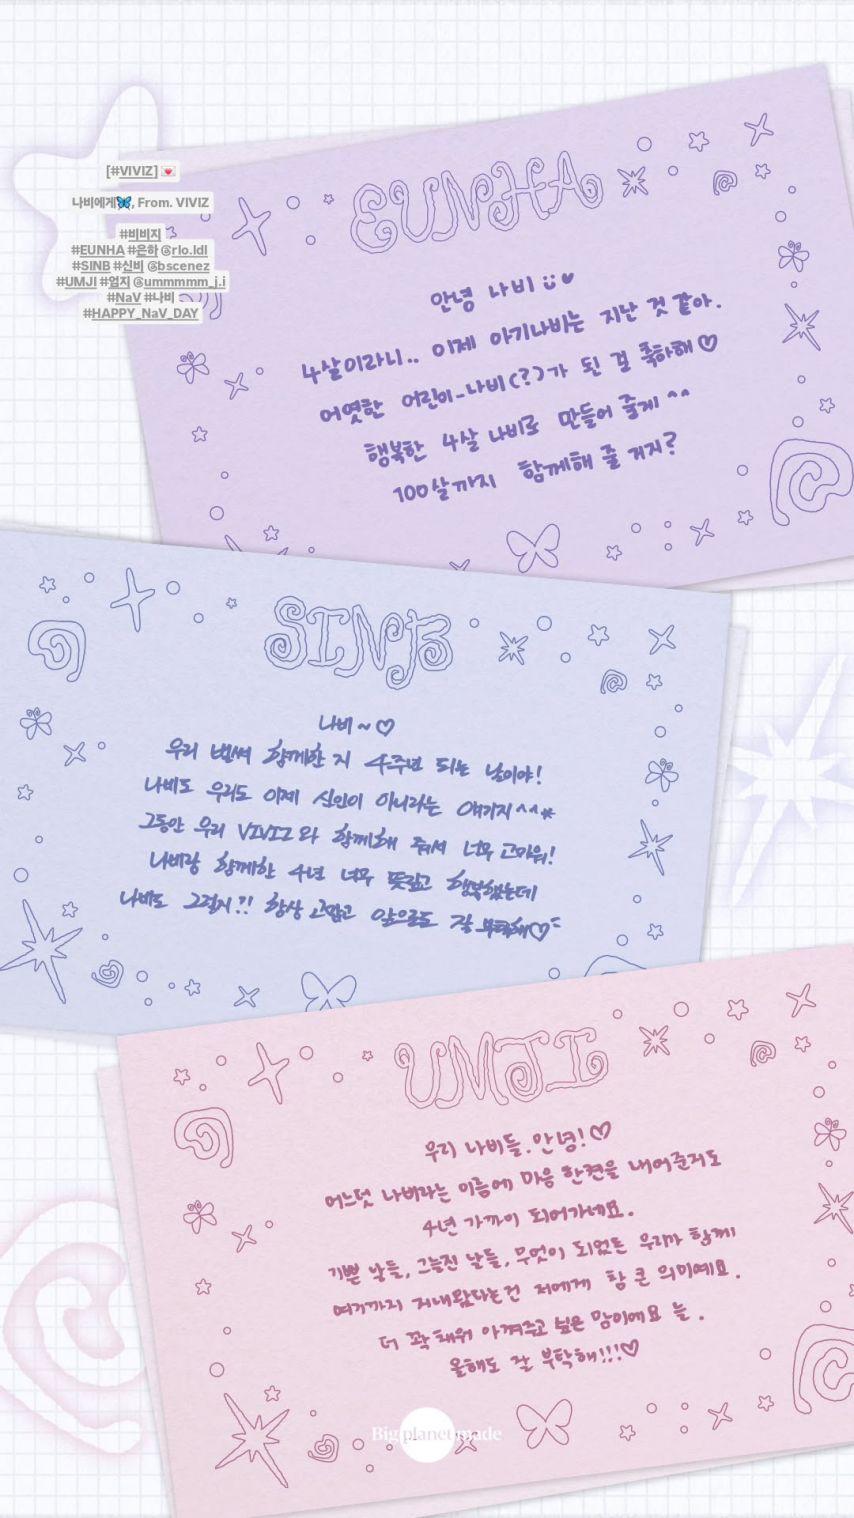 [#VIVIZ] 💌
나비에게🦋, From. VIVIZ
#비비지
#EUNHA #은하 @rlo.ldl
#SINB #신비 @bscenez
#UMJI #엄지 @ummmmm_j.i
#NaV #나비
#HAPPY_NaV_DAY
EUNHA
안녕 나비 ♥
4살이라니.. 이제 아기나비는 지난 것 같아.
어엿한 어린이-나비(?)가 된 걸 축하해♡
행복한 4살 나비로 만들어 줄게 ^^
100살까지 함께해 줄 거지?
SINB
나비~♡
우리 벌써 함께한 지 4주년 되는 날이야!
나비도 우리도 이제 신인이 아니라는 얘기지^^*
그동안 우리 VIVIZ와 함께해 줘서 너무 고마워!
나비랑 함께한 4년 너무 뜻깊고 행복했는데
나비도 그렇지?! 항상 고맙고 앞으로도 잘 부탁해♡
UMJI
우리 나비들. 안녕!♡
어느덧 나비라는 이름에 마음 한켠을 내어준지도
4년 가까이 되어가네요.
기쁜 날들, 그늘진 날들, 무엇이 되었든 우리가 함께
여기까지 지내왔다는건 저에게 참 큰 의미예요.
더 꽉 채워 아껴주고 싶은 맘이에요 늘.
올해도 잘 부탁해!!!♡
Big planet made